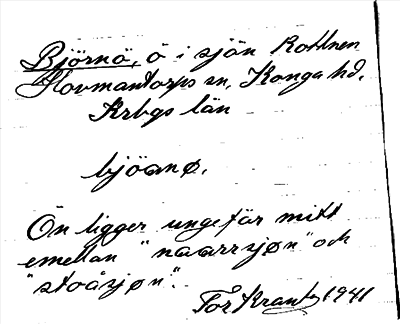 Björnö, ö i sjön Rottnen
Hovmantorps sn, Konga hd.
Krbgs län
bjöanø.
Ön ligger ungefär mitt
emellan "naarrsjøn" och
"stoåsjøn".
Tor Krantz 1941